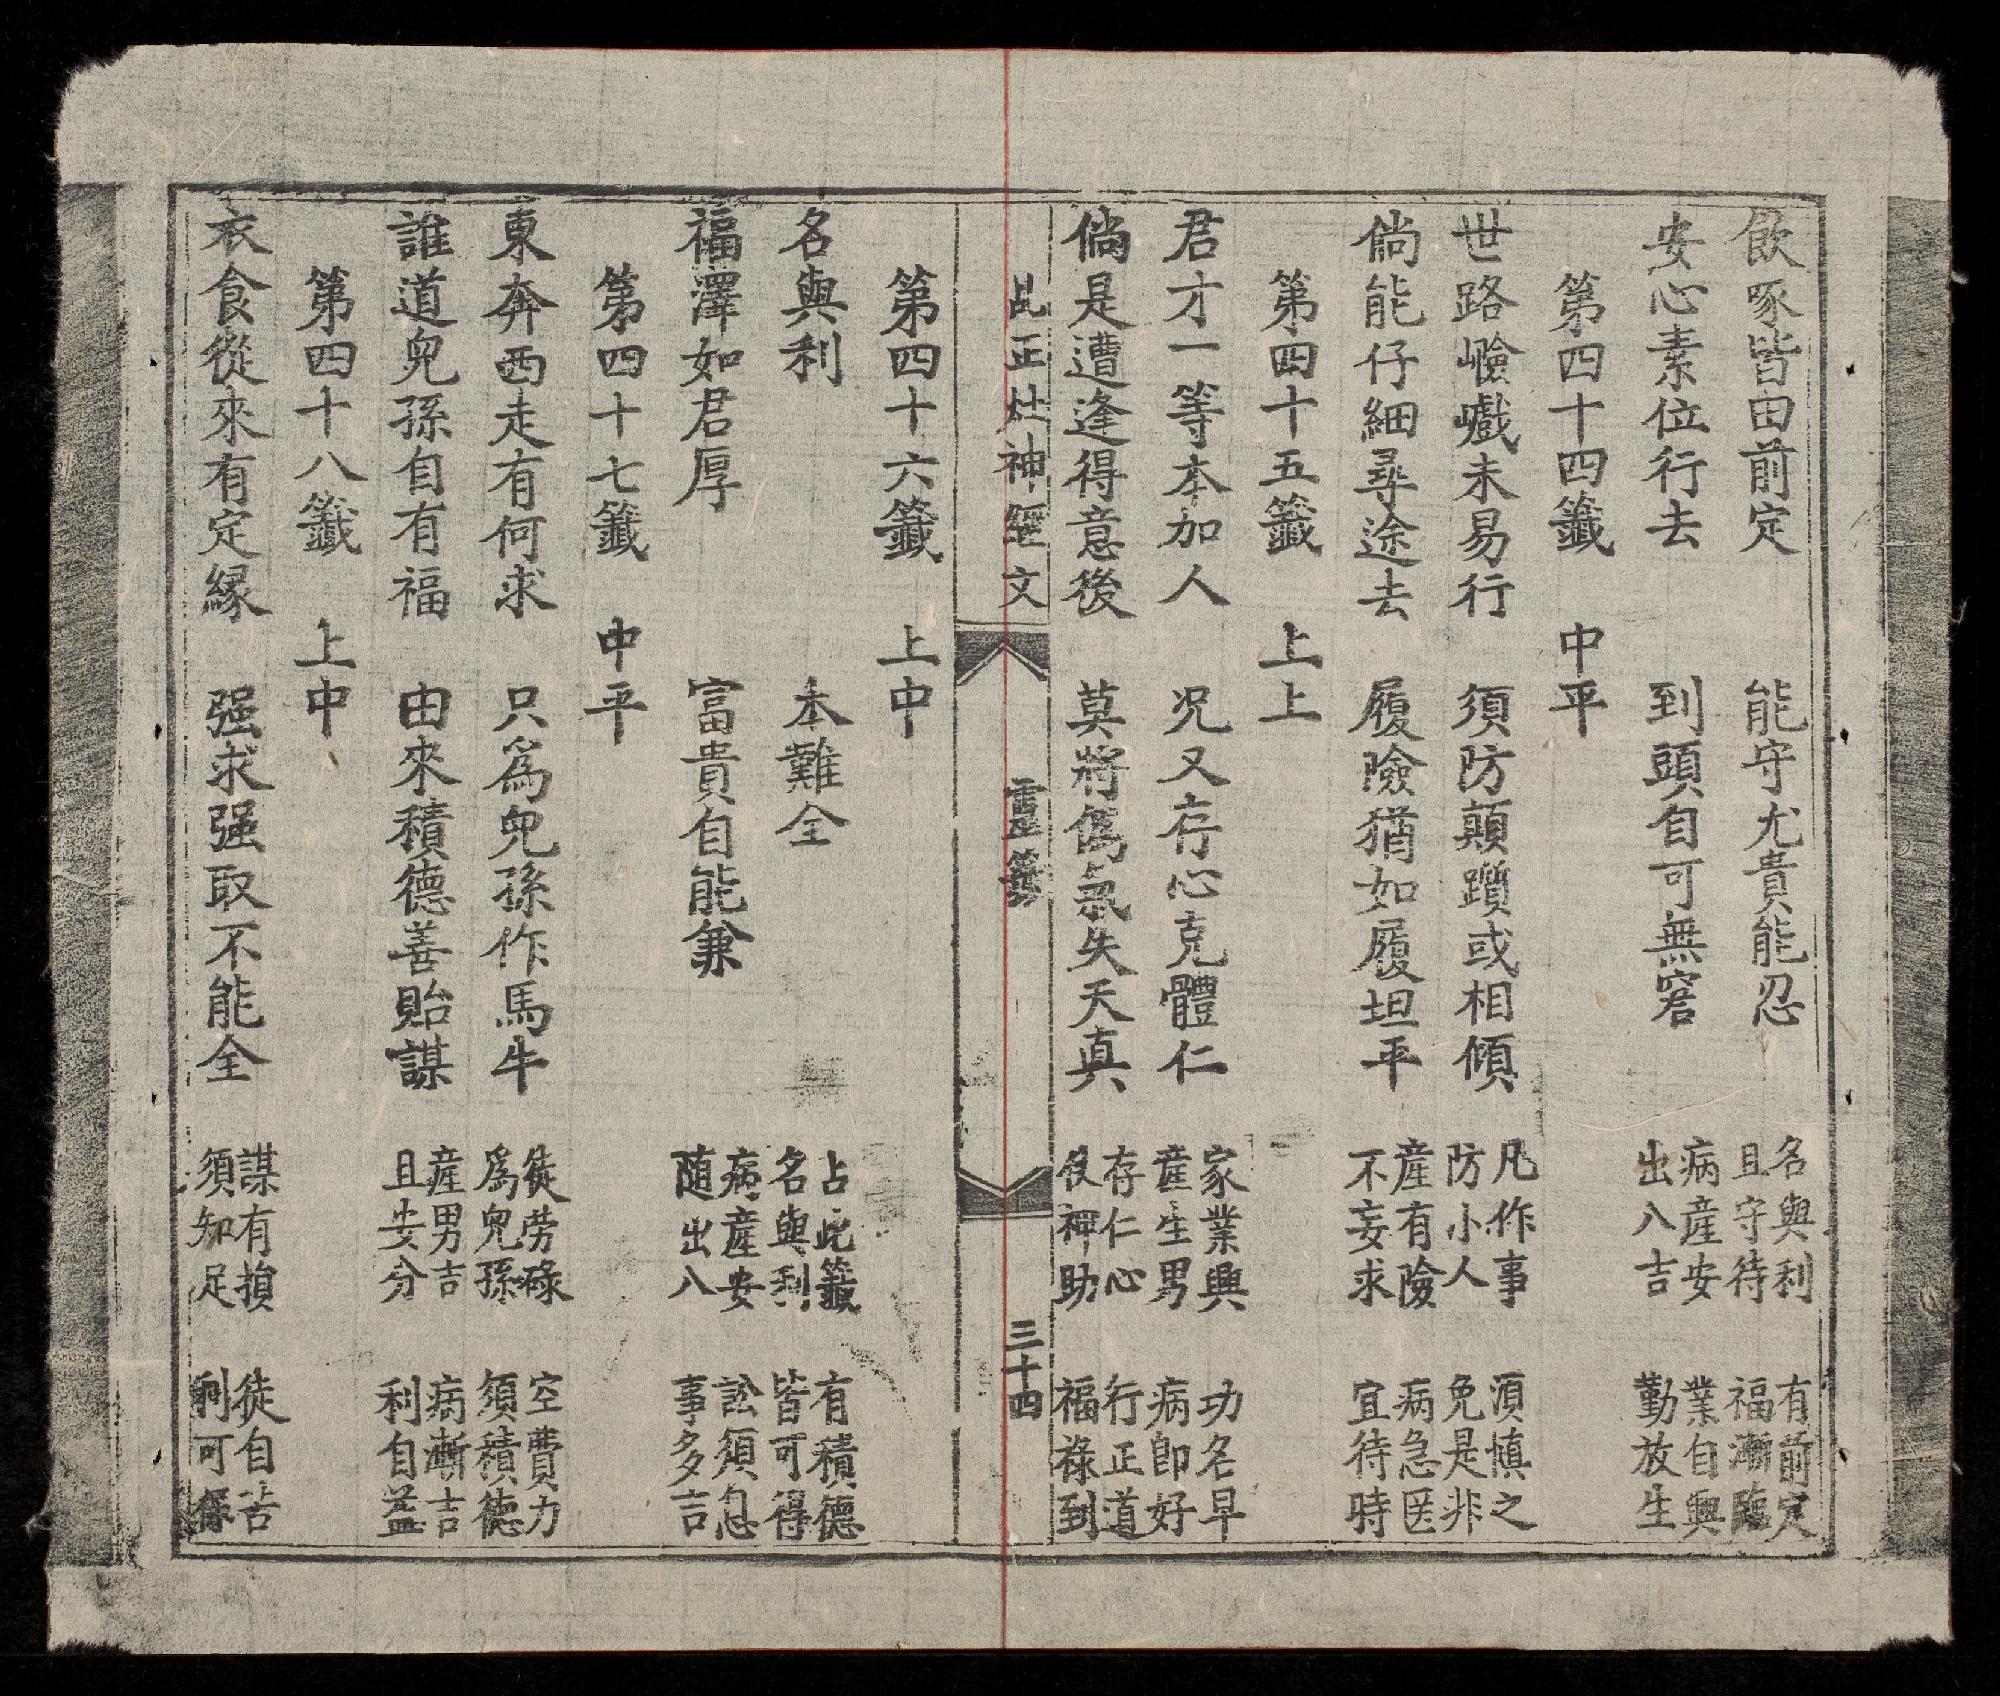 飲啄皆由前定　能守尤貴能忍　名與利　有前定
且守待　福漸臨
安心素位行去　到頭自可無窘　病產安　業自興
出入吉　勤放生
第四十四籤　中平
世路嶮巇未易行　須防顛躓或相傾　凡作事　須慎之
防小人　免是非
倘能仔細尋途去　履險猶如履坦平　產有險　病急医
不妄求　宜待時
第四十五籤　上上
君才一等本加人　况又存心克體仁　家業興　功名早
產生男　病即好
倘是遭逢得意後　莫將僞氣失天真　存仁心　行正道
得神助　福祿到
正灶神經文　靈籤　三十四
第四十六籤　上中
名與利　本難全　占此籤　有積德
名與利　皆可得
福澤如君厚　富貴自能兼　病產安　訟須急
随出入　事多言
第四十七籤　中平
東奔西走有何求　只爲兒孫作馬牛　徒劳碌　空費力
爲兒孫　須積德
誰道兒孫自有福　由來積德善貽謀　產男吉　病漸吉
且安分　利自益
第四十八籤　上中
衣食從來有定緣　强求强取不能全　謀有損　徒自苦
須知足　利可保